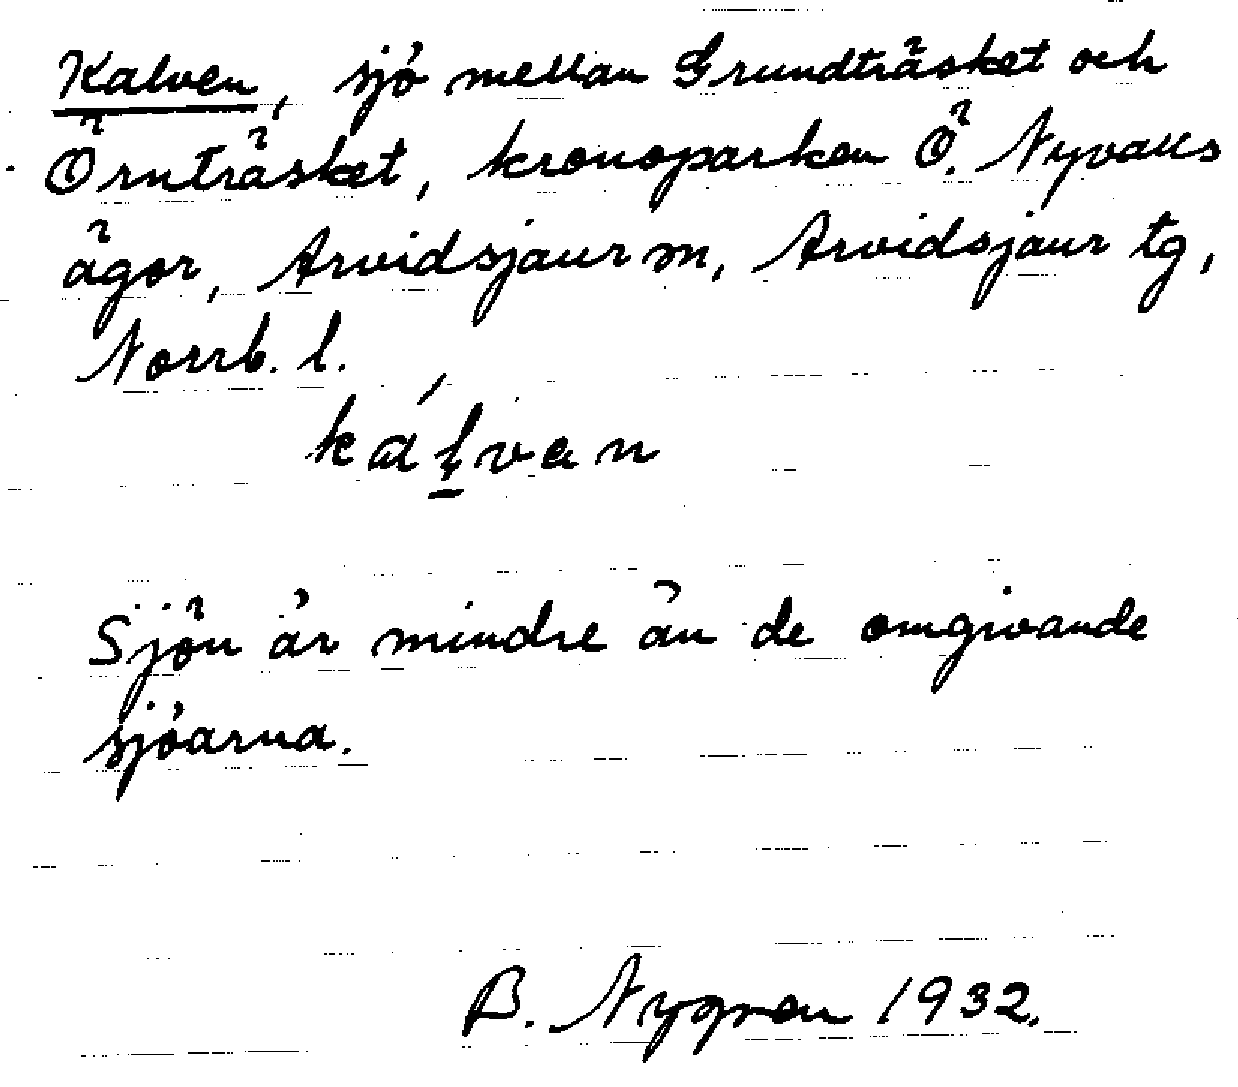 Kalven, sjö mellan Grundträsket och
Örnträsket, kronoparken Ö. Nyvalls
ägor, Arvidsjaur sn, Arvidsjaur tg,
Norrb. l.
kálvan
Sjön är mindre än de omgivande
sjöarna.
B. Nygren 1932.